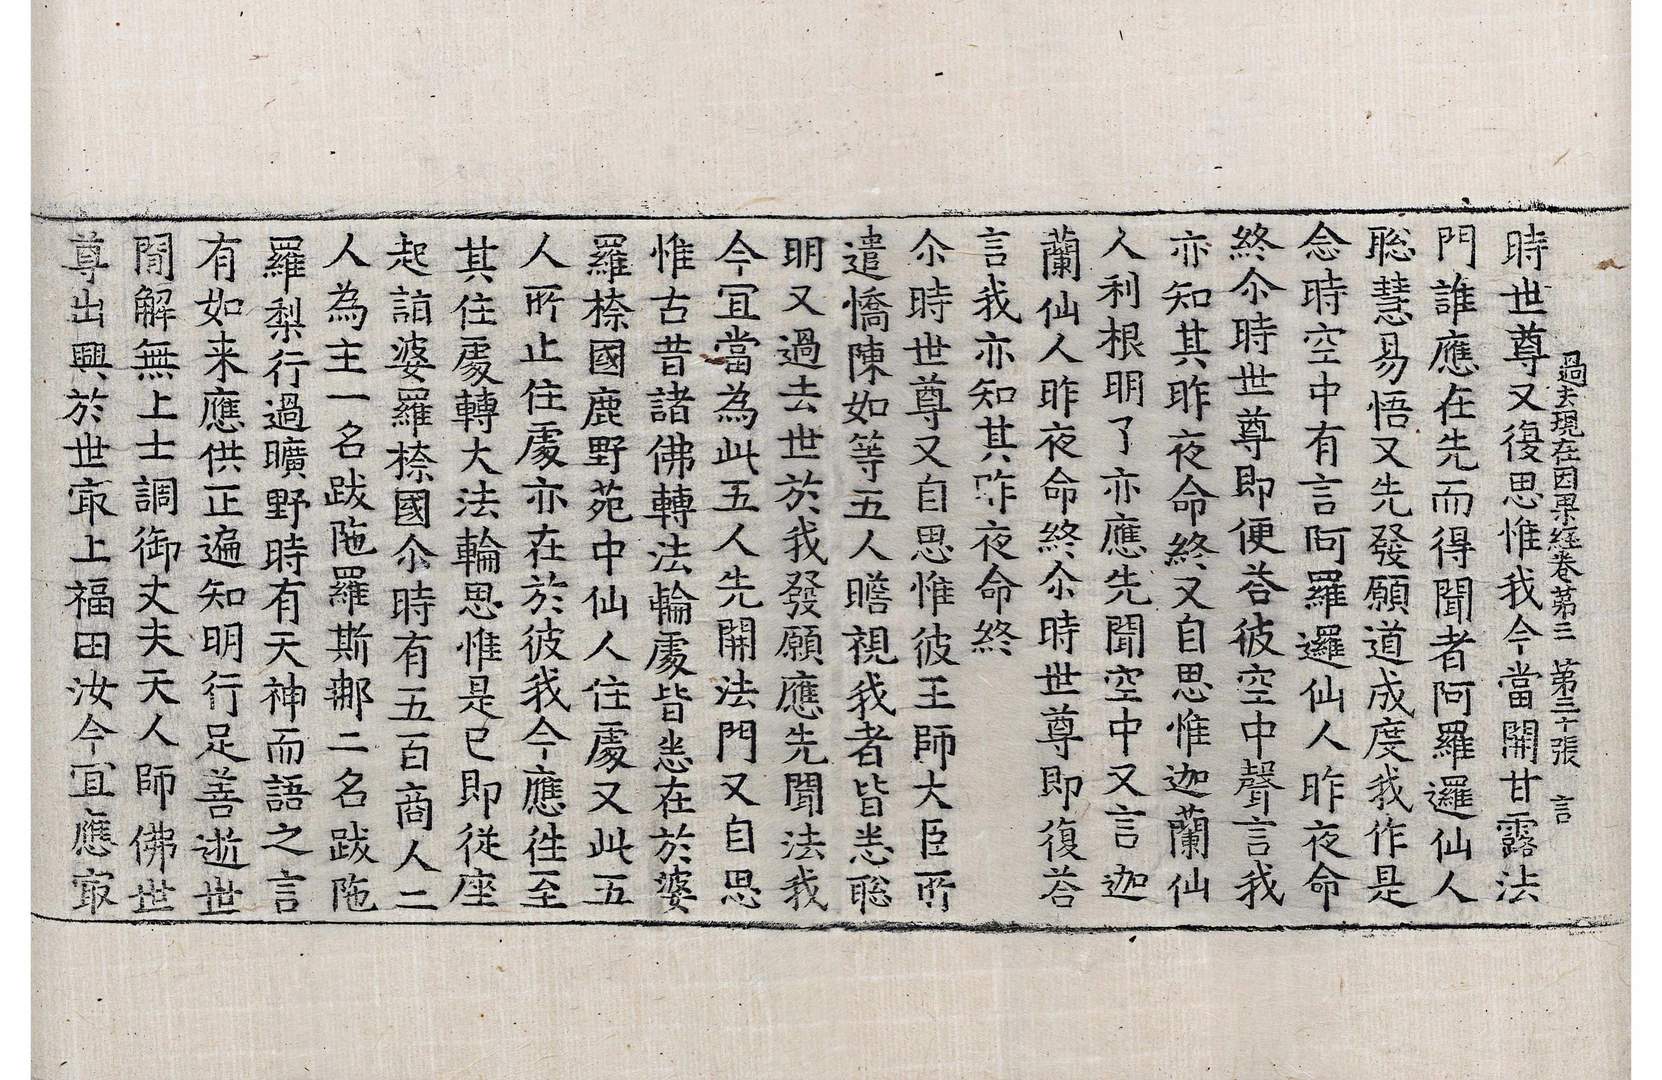 過去現在因果経卷第三　第三十張　言
時世尊又復思惟我今當開甘露法
門誰應在先而得聞者阿羅邏仙人
聡慧易悟又先發願道成度我作是
念時空中有言阿羅邏仙人昨夜命
終尒時世尊即便荅彼空中聲言我
亦知其昨夜命終又自思惟迦蘭仙
人利根明了亦應先聞空中又言迦
蘭仙人昨夜命終尒時世尊即復荅
言我亦知其昨夜命終
尒時世尊又自思惟彼王師大臣所
遣憍陳如等五人瞻視我者皆悉聡
明又過去世於我發願應先聞法我
今冝當為此五人先開法門又自思
惟古昔諸佛轉法輪處皆悉在於婆
羅㮈國鹿野苑中仙人住處又此五
人所止住處亦在於彼我今應徃至
其住處轉大法輪思惟是已即從座
起詣婆羅㮈國尒時有五百商人二
人為主一名跋陁羅斯那二名跋陁
羅梨行過曠野時有天神而語之言
有如来應供正遍知明行足善逝世
間解無上士調御丈夫天人師佛世
尊出興於世㝡上福田汝今冝應㝡